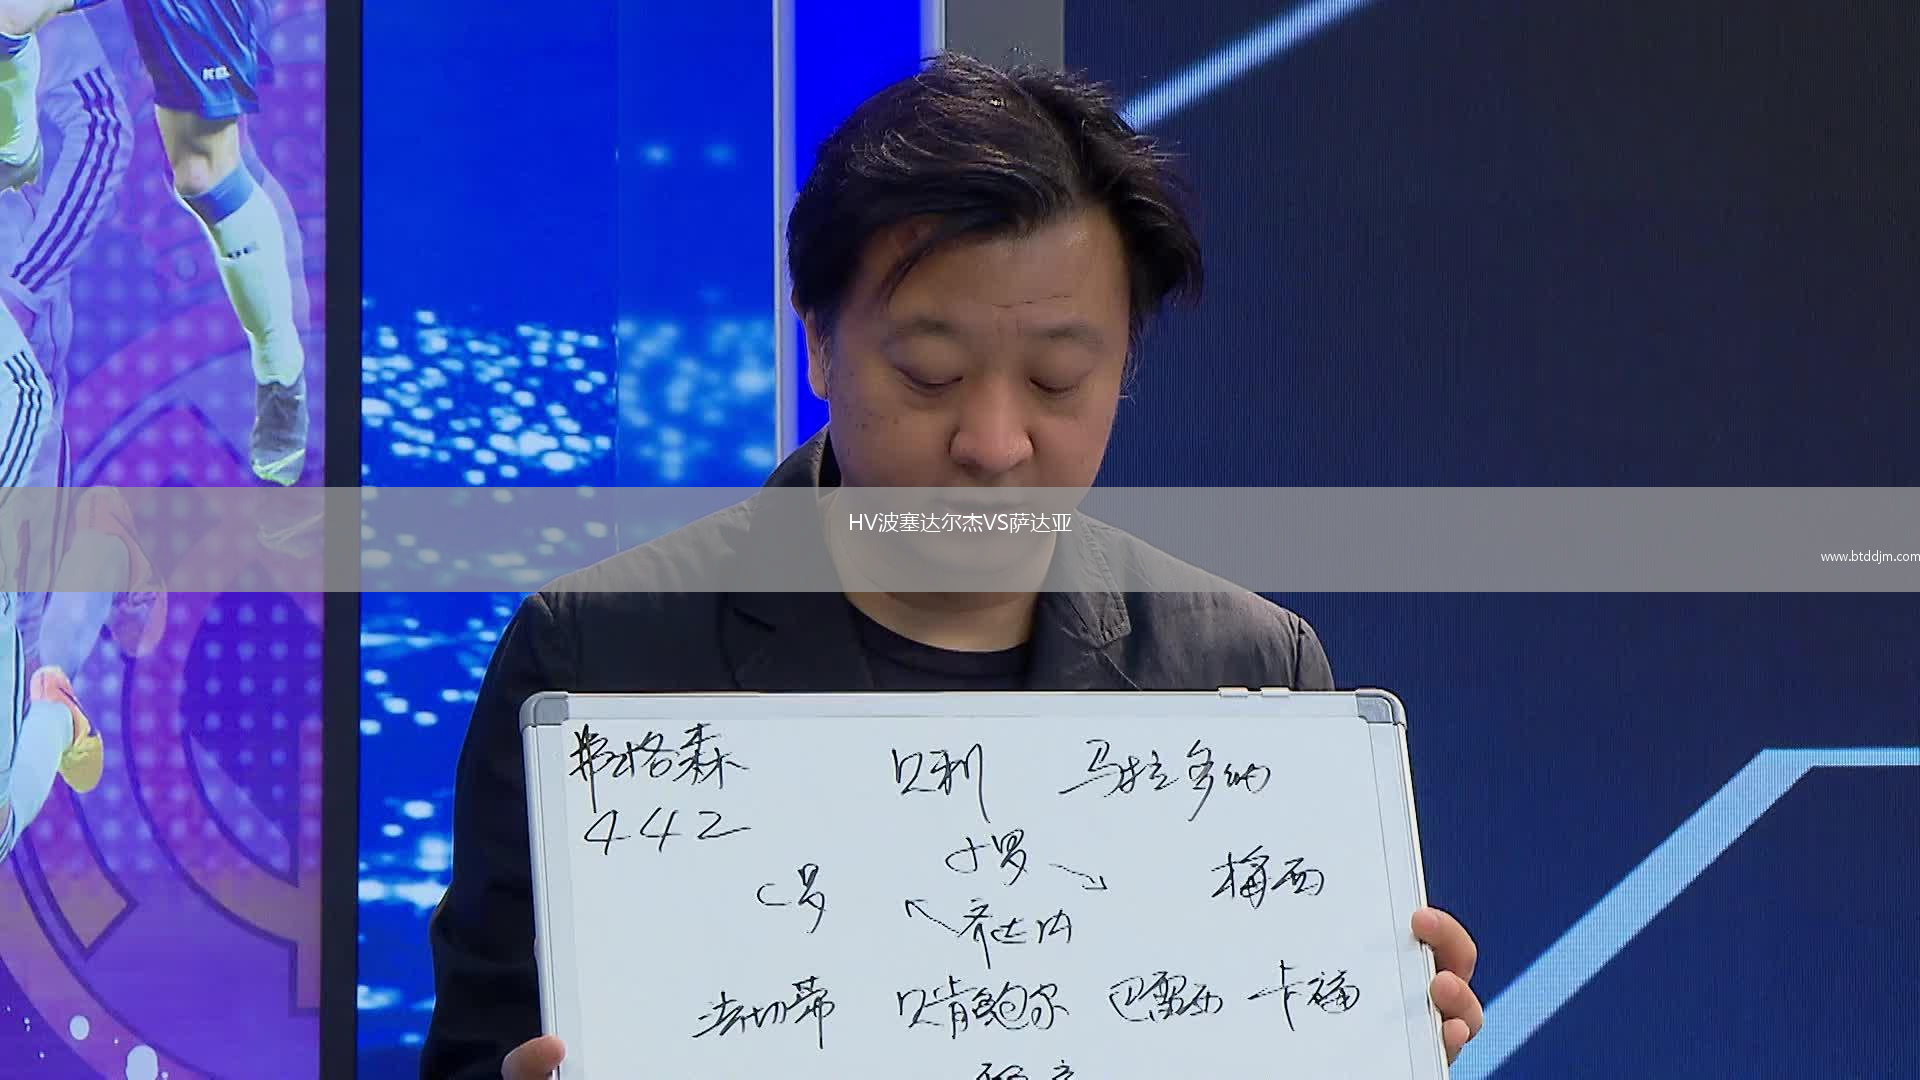 HV波塞达尔杰VS萨达亚
www.btddjm.com
弗格森 贝利 马拉多纳
442
小罗
C罗 梅西
齐达内
法切蒂 贝肯鲍尔 巴雷西 卡福